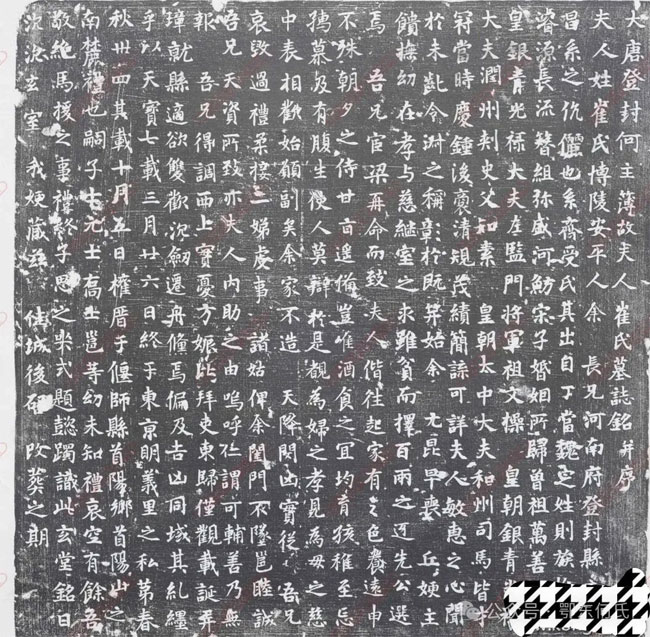 大唐登封何主簿故夫人崔氏墓誌銘并序
夫人姓崔氏博陵安平人余 長兄河南府登封縣
昌系之伉儷也系齊受氏其出自丁當魏定姓則族
濬源長流簪組弥盛河魴宋子婚姻所歸曾祖萬善
皇銀青光祿大夫左監門將軍祖文操 皇朝銀青
大夫潤州刺史父知素 皇朝太中大夫和州司馬皆才
冠當時慶鍾後裔清規茂績簡諜可詳夫人敏惠之心聞
於未齔令淑之稱彰於既笄始余 元昆早喪 丘嫂主
饋撫幼在孝与慈繼室之求雖貧而擇百兩之迓先公選
焉 吾兄宦梁再命而致夫人偕往起家有之色養遠申
不殊朝夕之侍甘旨遙備豈唯酒食之宜均育孩稚至忘
孺慕及有腹生使人莫辯於是覩為婦之孝見為母之慈
中表相歡始願副矣余家不造 天降閔凶實從 吾兄
哀毀過禮柔接三婦虔事 諸姑俾余閨門不墜邕睦誠
吾兄天資所致亦夫人內助之由嗚呼仁謂可輔善乃無
報 吾兄得調西上寔憂方娠比拜吏東歸僅觀載誕弄
璋就縣適欲雙歡沉劒遷舟倏焉偏及吉凶同域其糺纆
乎以天寶七載三月廿六日終于東京明義里之私第春
秋卅四其載十月五日權厝于偃師縣首陽鄉首陽山之
南麓禮也嗣子士元士高士邕等幼未知禮哀空有餘吾
敬絶馬援之事禮終子思之哭式題懿躅識此玄堂銘曰
沉沉玄室 我嫂藏兹 佳城後啟 改葬之期
公众号·鄂东何氏